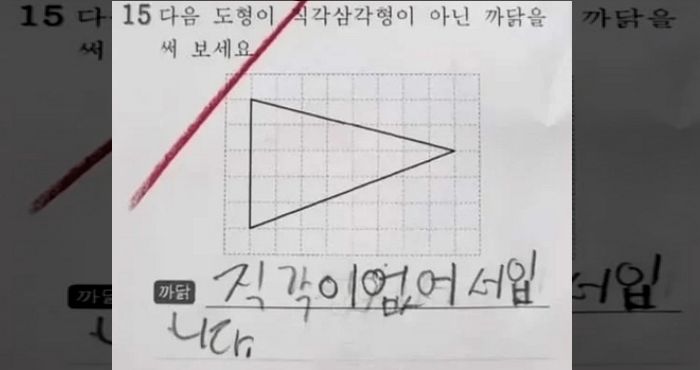 15 다음 도형이 직각삼각형이 아닌 까닭을
써 보세요.
까닭 직각이없어서입
니다.